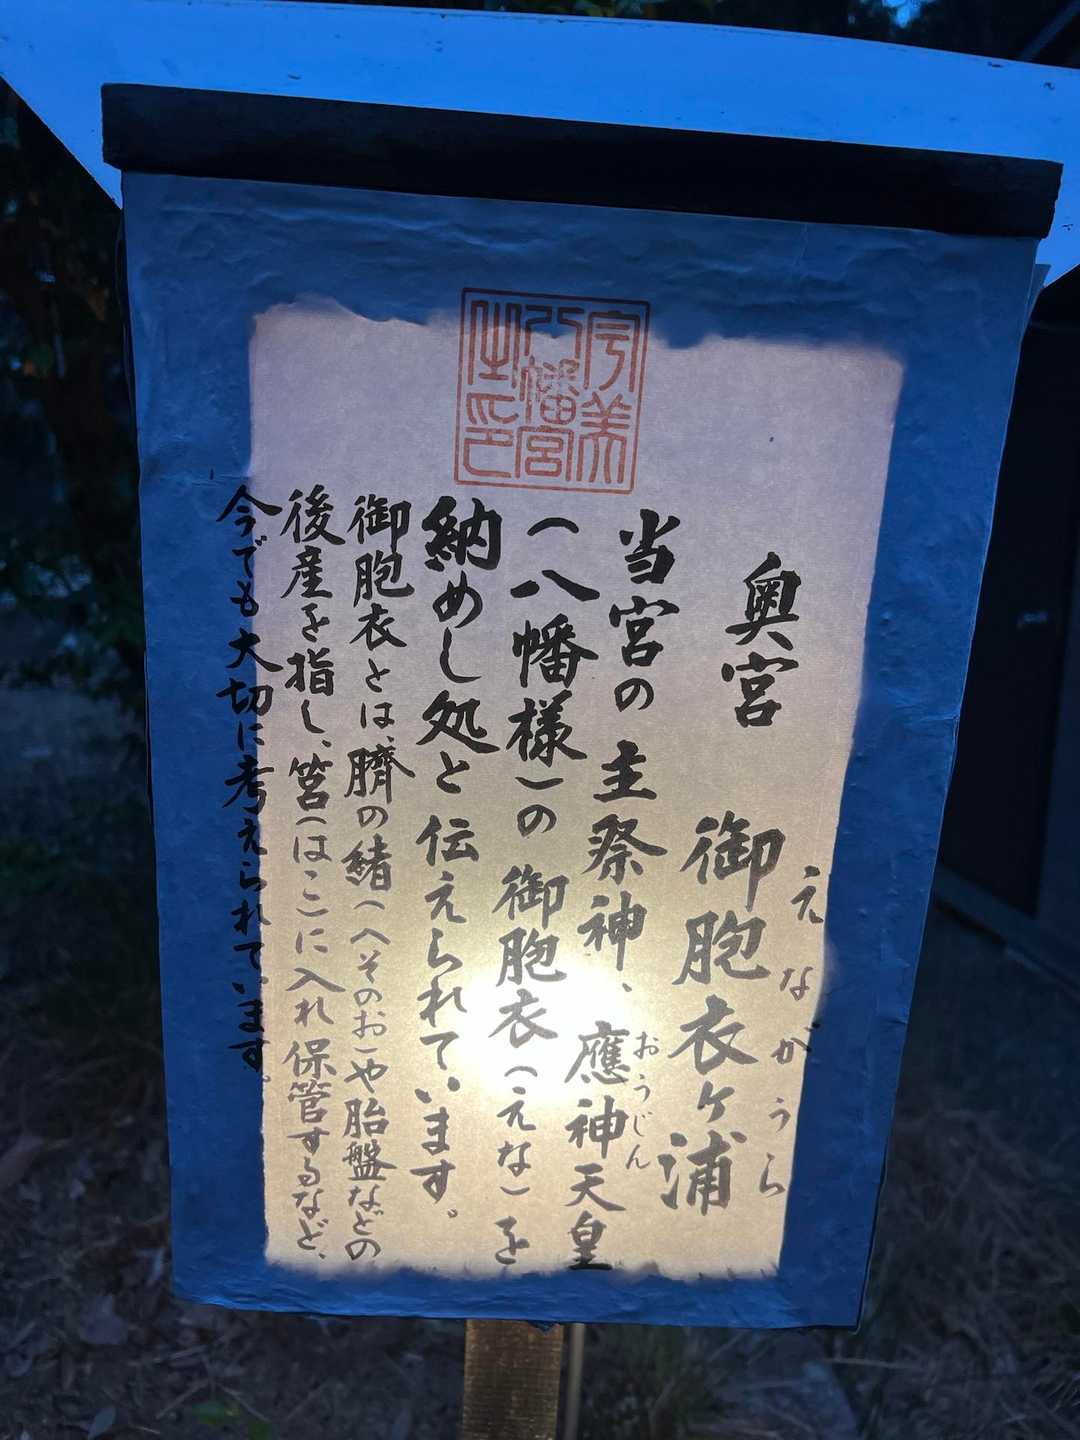 宇美
八幡宮
之印
奥宮 御胞衣ヶ浦
えながうら
当宮の主祭神、應神天皇
おうじん
(八幡様)の御胞衣(えな)を
納めし処と伝えられています。
御胞衣とは、臍の緒(へそのお)や胎盤などの
後産を指し、筥(はこ)に入れ保管するなど、
今でも大切に考えられています。